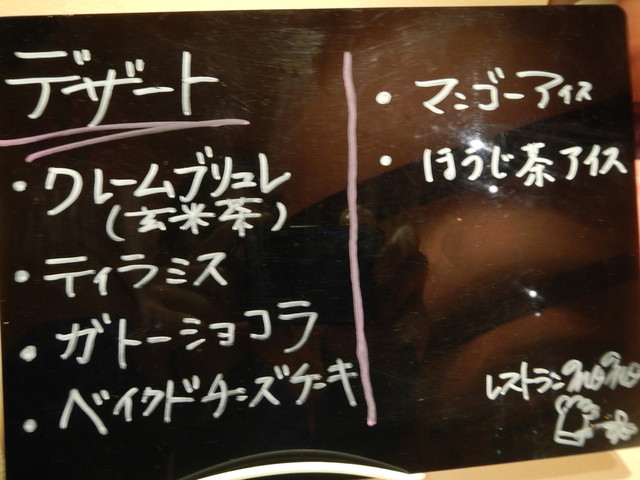 デザート
・クレームブリュレ
(玄米茶)
・ティラミス
・ガトーショコラ
・ベイクドチーズケーキ
・マンゴーアイス
・ほうじ茶アイス
レストラン nono